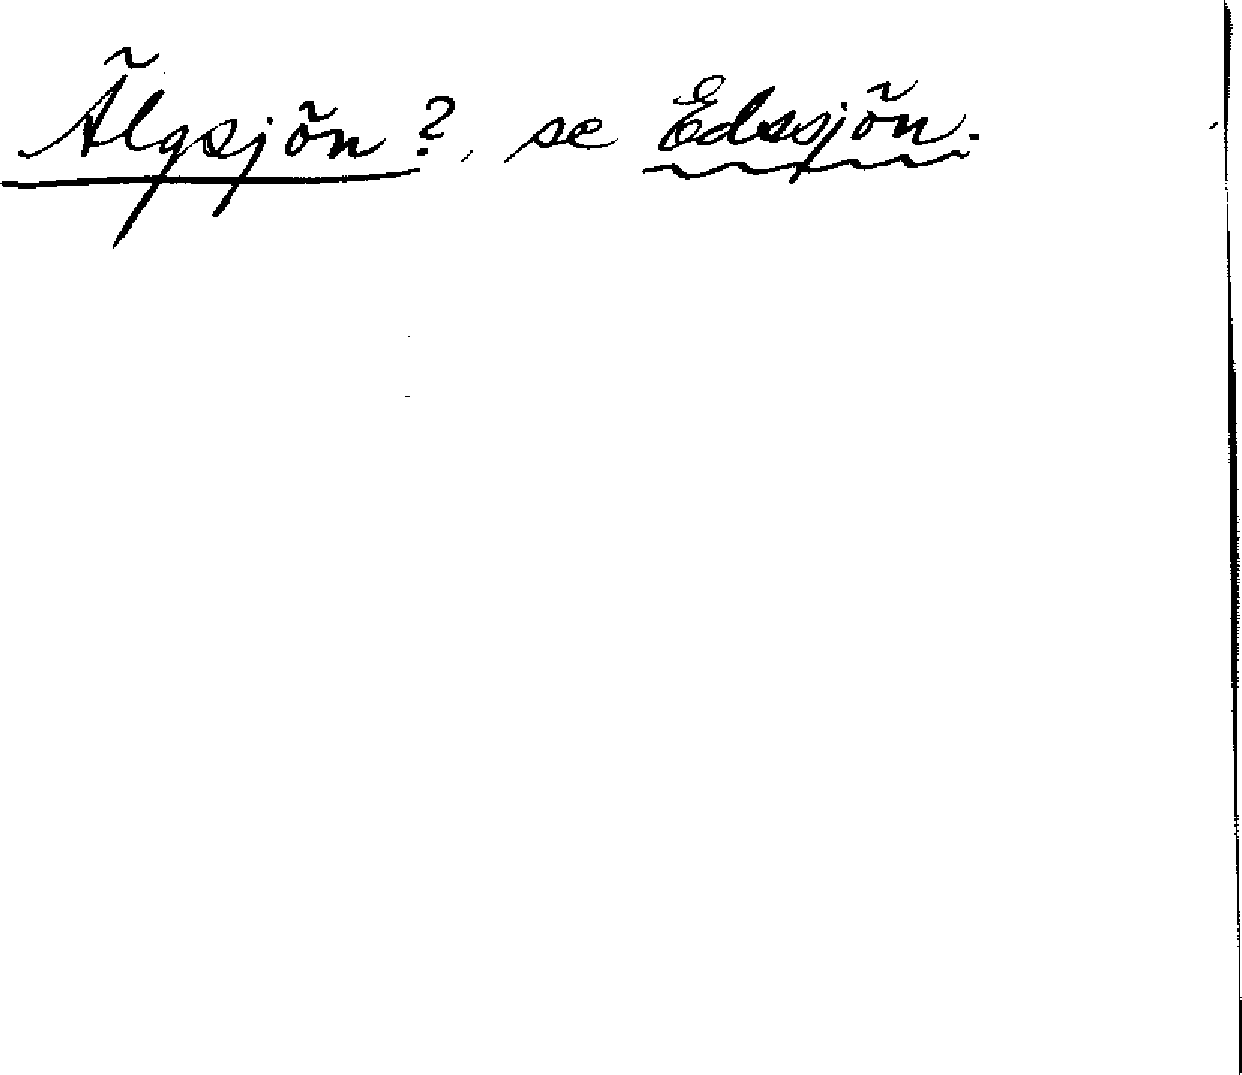 Älgsjön?, se Edssjön.